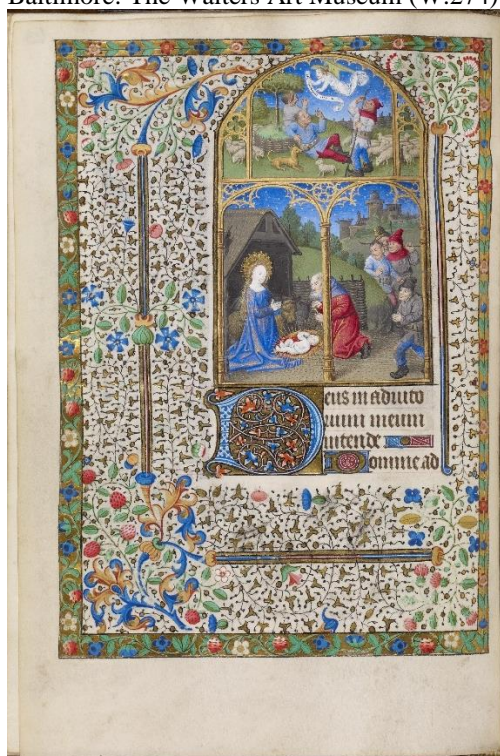 Baltimore. The Walters Art Museum (W.274)
Deus in adiuto
rium meum
intende
Domine ad